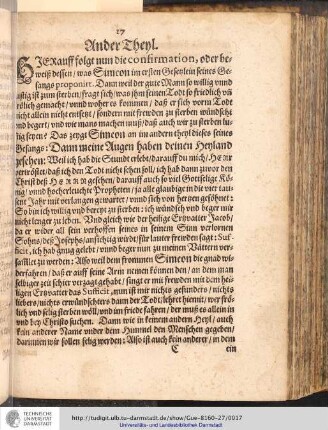 17
Ander Theyl.
HIERauff folgt nun die confirmation, oder be-
weiß dessen / was Simeon im ersten Gesetzlein seines Ge-
sangs proponirt. Dann weil der gute Mann so willig vnnd
lustig ist zum sterben / fragt sich / was ihm seinen Todt so friedlich vñ
frölich gemacht / vnnd woher es kommen / daß er sich vorm Todt
nicht allein nicht entsetzt / sondern mit frewden zu sterben wündscht
vnd begert / vnd wie mans machen muß / daß auch wir zu sterben lu-
stig seyen? Das zeygt Simeon an im andern theyl dieses seines
Gesangs: Dann meine Augen haben deinen Heyland
gesehen: Weil ich hab die Stundt erlebt / darauff du mich / HERR
vertröstet / daß ich den Todt nicht sehen soll / ich hab dann zuvor den
Christ deß HERRN gesehen / darauff auch so viel Gottselige Kö-
nig / vnnd hocherleuchte Propheten / ja alle glaubige in die vier tau-
sent Jahr mit verlangen gewartet / vnnd sich von hertzen gesehnet:
So bin ich willig vnd bereyt zu sterben: ich wündsch vnd beger nit
mehr länger zu leben. Vnd gleich wie der heilige Ertzvatter Jacob /
da er wider all sein verhoffen seines in seinem Sinn verlornen
Sohns / deß Josephs / ansichtig würdt / für lauter frewden sagt: Suf-
ficit, ich hab gnug gelebt / vnnd beger nun zu meinen Vättern ver-
samlet zu werden: Also weil dem frommen Simeon die gnad wi-
derfahren / daß er auff seine Arm nemen können den / an dem man
selbiger zeit schier verzagt gehabt / singt er mit frewden mit dem hei-
ligen Ertzvatter das Sufficit, nun ist mir nichts gesünders / nichts
liebers / nichts erwündschters dann der Todt / lehret hiemit / wer frö-
lich vnd selig sterben wöll / vnd im friede fahren / der muß es allein in
vnd bey Christo suchen. Dann wie in keinem andern Heyl / auch
kein anderer Name vnder dem Himmel den Menschen gegeben /
darinnen wir sollen selig werden: Also ist auch kein anderer / in dem
C
ein
TECHNISCHE
UNIVERSITÄT
DARMSTADT
http://tudigit.ulb.tu-darmstadt.de/show/Gue-8160-27/0017
Universitäts- und Landesbibliothek Darmstadt